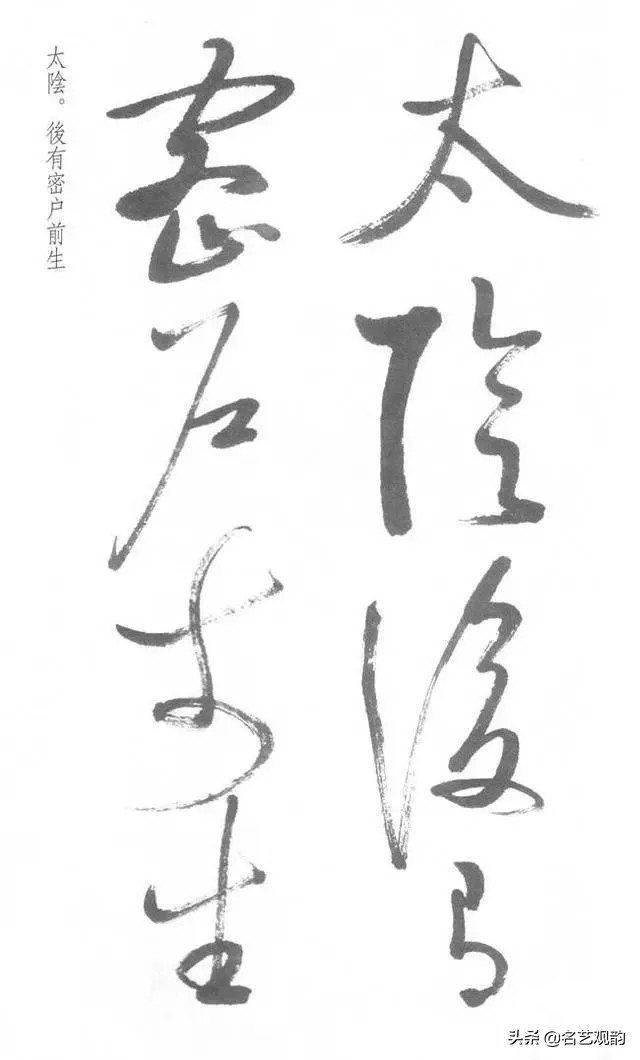 太陰後有
密户前生
太陰。後有密户前生
头条 @名艺观韵